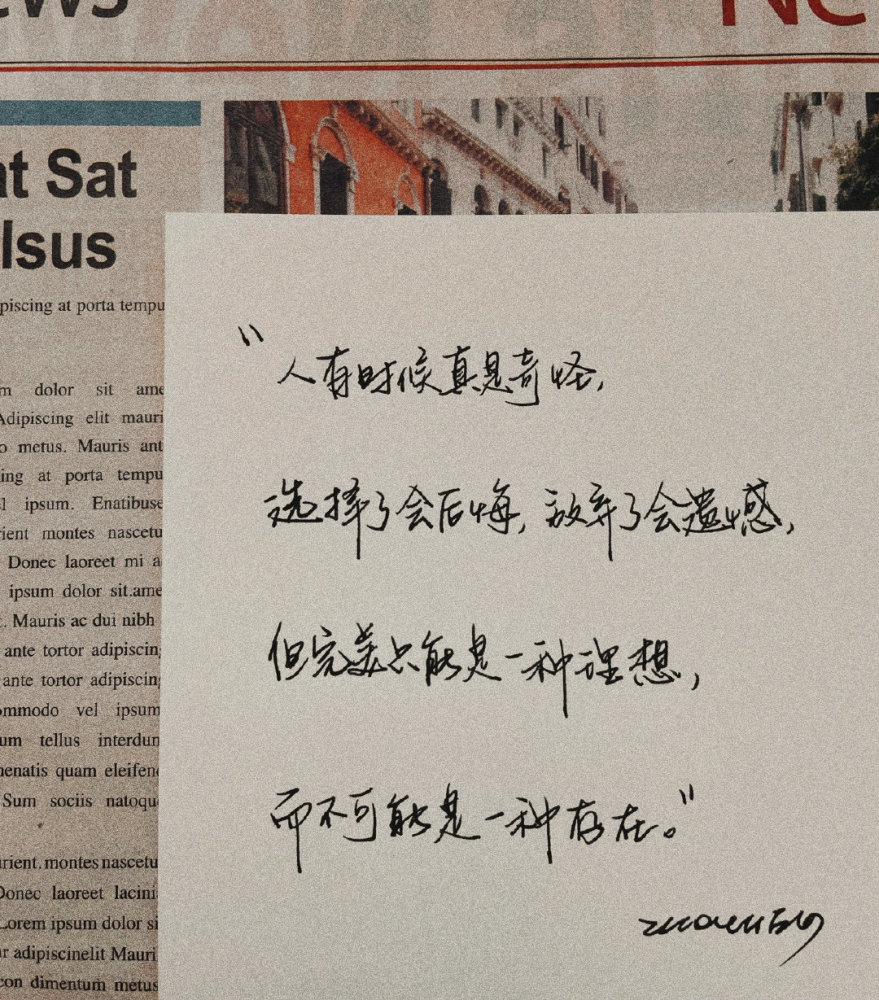 ews
Ne
at Sat
Isus
piscing at porta tempu
m dolor sit ame
Adipiscing elit mauri
o metus. Mauris ant
ing at porta tempu
l ipsum. Enatibuse
rient montes nascetu
Donec laoreet mi a
ipsum dolor sit.ame
. Mauris ac dui nibh
ante tortor adipiscin
ante tortor adipiscin
ommodo vel ipsum
um tellus interdun
nenatis quam eleifen
Sum sociis natoqu
rient. montes nascetu
Donec laoreet lacini
Lorem ipsum dolor si
r adipiscinelit Mauri
con dimentum metus
"人有时候真是奇怪,
选择了会后悔,放弃了会遗憾,
但完美只能是一种理想,
而不可能是一种存在。"